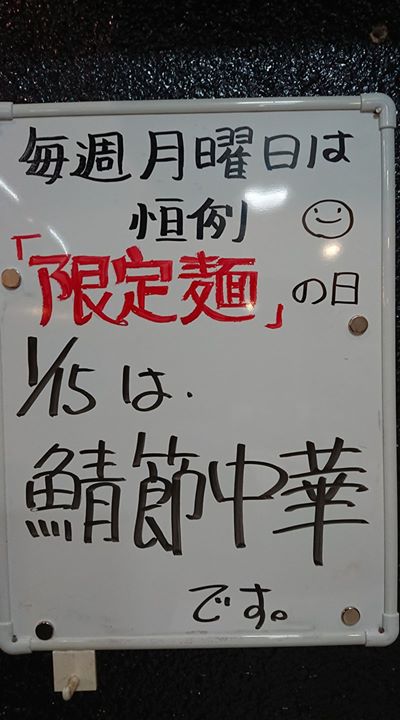 毎週月曜日は
恒例
「限定麺」の日
1/15は.
鯖節中華
です。